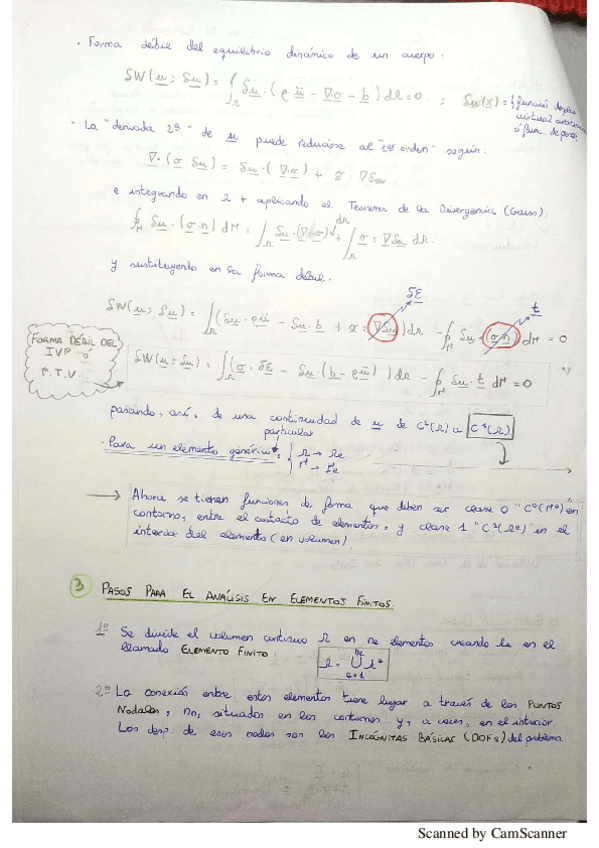 · Forma débil del equilibrio dinámico de un cuerpo:
δW(u; δu) = ∫_Ω δu · (ρü − ∇·σ − b) dΩ = 0 ; δu(x) = { función desplto
virtual arbitraria
ó fun. de peso
· La "derivada 2ª" de u puede reducirse al "1er orden" según:
∇·(σ · δu) = δu · (∇·σ) + σ : ∇δu
e integrando en Ω + aplicando el Teorema de la Divergencia (Gauss),
∮_Γ δu · (σ·n) dΓ = ∫_Ω δu · (∇·σ) dΩ + ∫_Ω σ : ∇δu dΩ.
y sustituyendo en la forma débil:
δε t
δW(u; δu) = ∫_Ω (δu · ρü − δu · b + σ : ∇δu) dΩ − ∮_Γ δu · (σ·n) dΓ = 0
FORMA DÉBIL DEL
IVP ó
P.T.V.
δW(u; δu) = ∫_Ω (σ : δε − δu · (b − ρü)) dΩ − ∮_Γ δu · t dΓ = 0
pasando, así, de una continuidad de u de C²(Ω) a C¹(Ω)
particular
· Para un elemento genérico: { Ω → Ωe
Γ → Γe
→ Ahora se tienen funciones de forma que deben ser clase 0 "C⁰(Γᵉ)" en
contorno, entre el contacto de elementos, y clase 1 "C¹(Ωᵉ)" en el
interior del elemento (en volumen)
3 PASOS PARA EL ANÁLISIS EN ELEMENTOS FINITOS.
1º Se divide el volumen continuo Ω en ne elementos creando en el
llamado ELEMENTO FINITO: Ω = ⋃_{e=1}^{ne} Ωᵉ
2º La conexión entre estos elementos tiene lugar a través de los PUNTOS
NODALES, nn, situados en los contornos y, a veces, en el interior.
Los desp de esos nodos son las INCÓGNITAS BÁSICAS (DOFs) del problema
Scanned by CamScanner